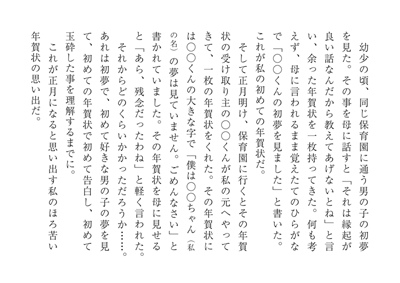 幼少の頃、同じ保育園に通う男の子の初夢
を見た。その事を母に話すと「それは縁起が
良い話なんだから教えてあげないとね」と言
い、余った年賀状を一枚持ってきた。何も考
えず、母に言われるまま覚えたてのひらがな
で「〇〇くんの初夢を見ました」と書いた。
これが私の初めての年賀状だ。
そして正月明け、保育園に行くとその年賀
状の受け取り主の〇〇くんが私の元へやって
きて、一枚の年賀状をくれた。その年賀状に
は〇〇くんの大きな字で「僕は〇〇ちゃん（私
の名）の夢は見ていません。ごめんなさい」と
書かれていました。その年賀状を母に見せる
と「あら、残念だったわね」と軽く言われた。
それからどのくらいかかっただろうか……。
あれは初夢で、初めて好きな男の子の夢を見
て、初めての年賀状で初めて告白し、初めて
玉砕した事を理解するまでに。
これが正月になると思い出す私のほろ苦い
年賀状の思い出だ。